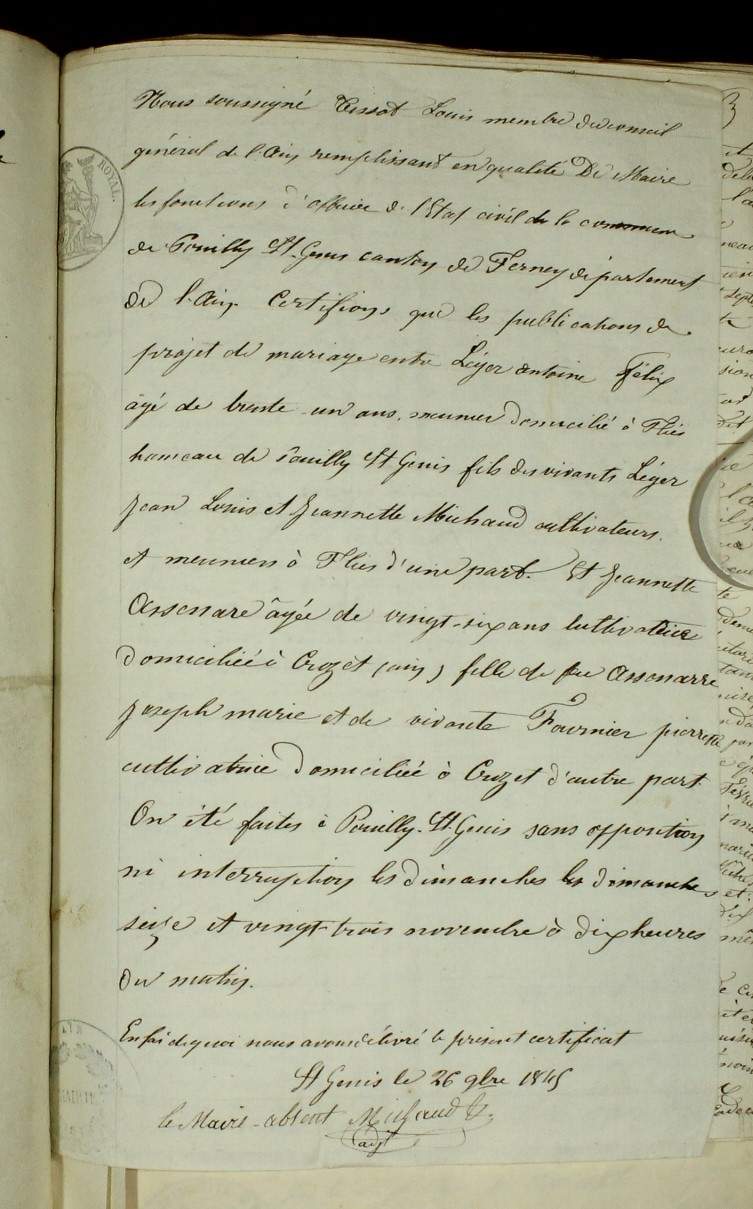 Nous soussigné Tissot Louis membre du conseil
général de l'Ain remplissant en qualité De Maire
les fonctions d'officier de l'Etat civil de la commune
de Pouilly St. Genis canton de Ferney département
de l'Ain Certifions que les publications de
projet de mariage entre Léger antoine Félix
âgé de trente-un ans, meunier domicilié à Flies
hameau de Pouilly St Genis fils des vivants Léger
Jean Louis et Jeannette Michaud cultivateurs
et meuniers à Flies d'une part. Et Jeannette
Assenare âgée de vingt-six ans cultivatrice
Domiciliée à Crozet (ain) fille de feu Assenarre
Joseph marie et de vivante Fournier pierrette
cultivatrice Domiciliée à Crozet d'autre part.
On été faites à Pouilly-St. Genis sans opposition
ni interruption les dimanches les dimanches
seize et vingt-trois novembre à dix heures
du matin.
En foi de quoi nous avons délivré le présent certificat
St Genis le 26 9bre 1845
le Maire absent Michaud
adjt
ROYAL.